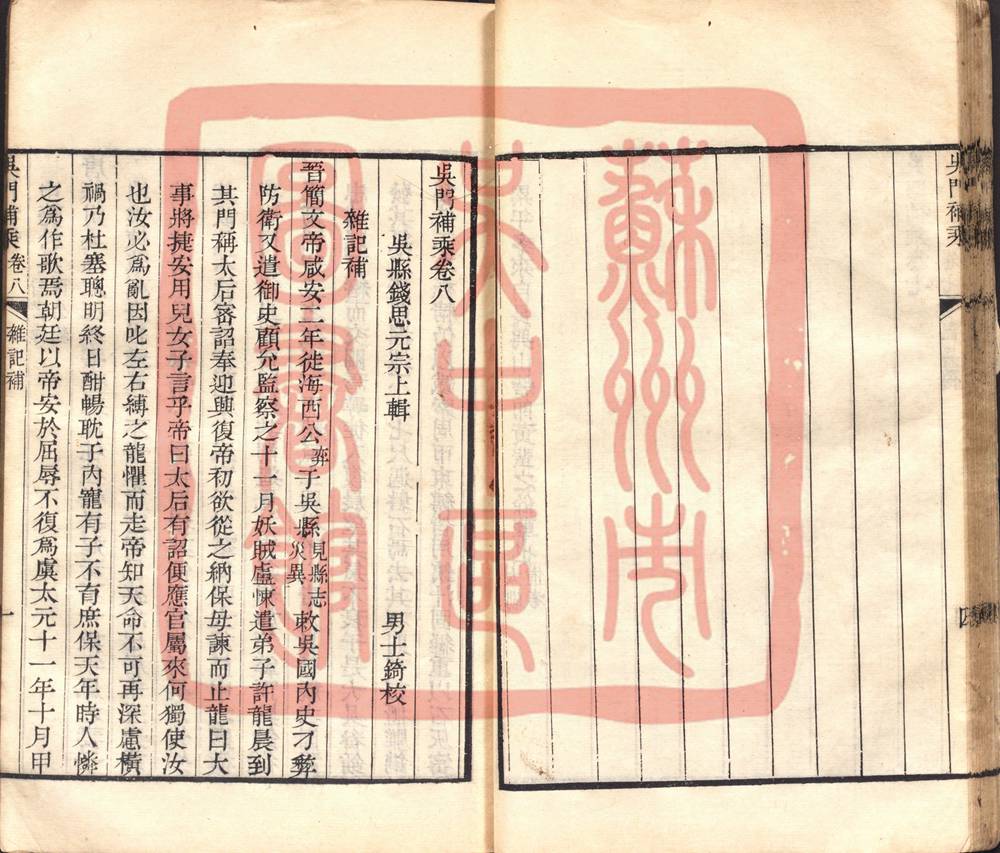 吳門補乘
吳門補乘卷八
吳縣錢思元宗上輯　男士錡校
雜記補
晉簡文帝咸安二年徙海西公弈于吳縣見縣志災異敕吳國內史刁彝
防衛又遣御史顧允監察之十一月妖賊盧悚遣弟子許龍晨到
其門稱太后密詔奉迎興復帝初欲從之納保母諫而止龍曰大
事將捷安用兒女子言乎帝曰太后有詔便應官屬來何獨使汝
也汝必爲亂因叱左右縛之龍懼而走帝知天命不可再深慮橫
禍乃杜塞聰明終日酣暢耽于內寵有子不育庶保天年時人憐
之爲作歌焉朝廷以帝安於屈辱不復爲虞太元十一年十月甲
吳門補乘卷八
雜記補
一
蘇州市
圖書館